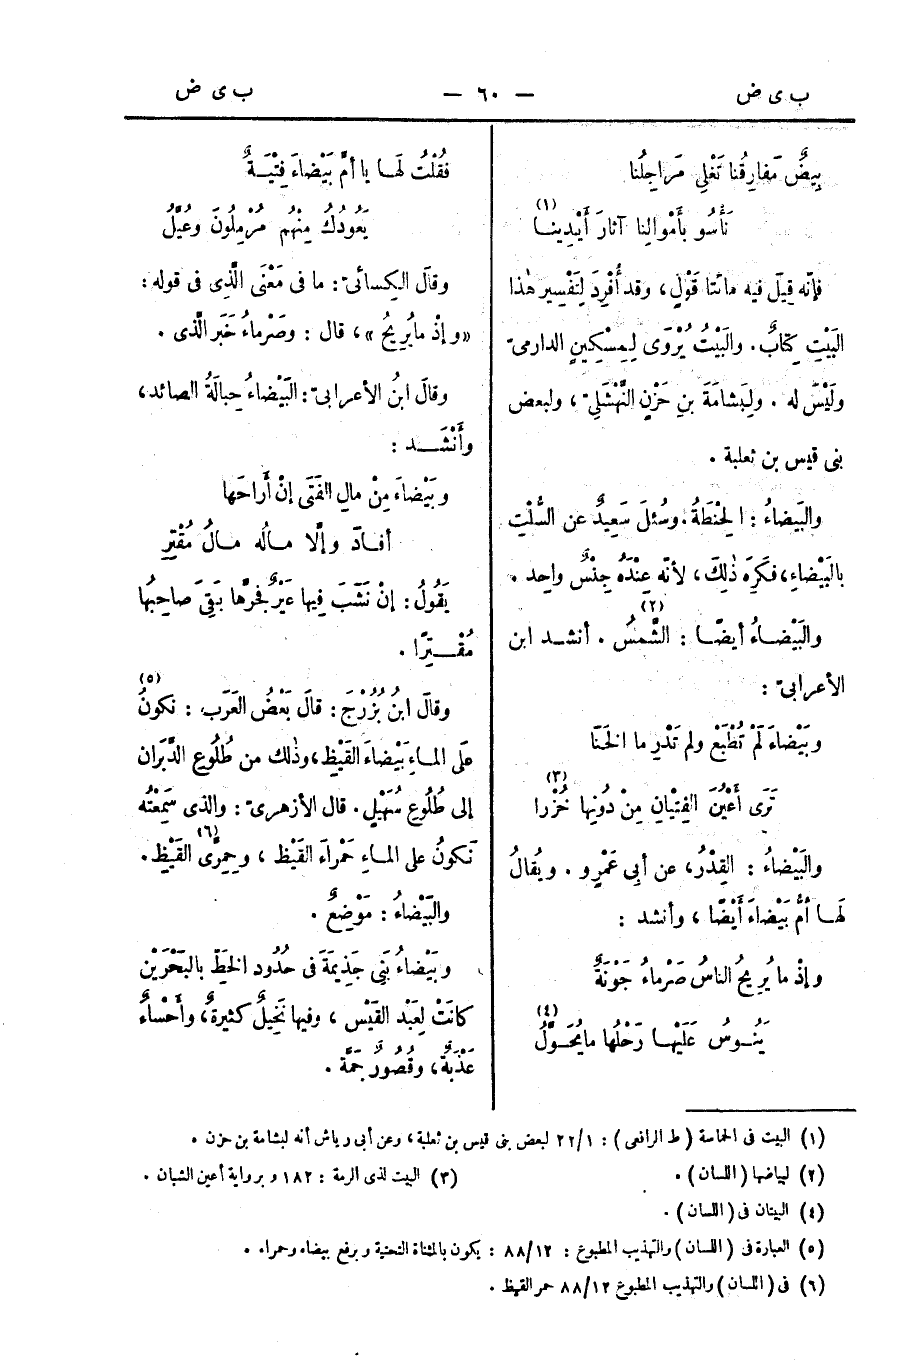 ب ى ض — ٦٠ — ب ى ض
بِيضٌ مَفارِقُنا تَغْلِي مَراجِلُنا
نَأْسُو بأَمْوالِنا آثارَ أَيْدِينا (١)
فإنّه قِيلَ فيه مائتا قَوْلٍ، وقد أُفْرِدَ لِتَفْسِير هٰذا
البَيْتِ كِتابٌ. والبَيْتُ يُرْوَى لِمِسْكِينٍ الدارمىّ
ولَيْسَ له. ولِبَشامَةَ بنِ حَزْنٍ النَّهْشَلِىّ، ولبعض
بنى قيس بن ثعلبة.
والبَيضاءُ: الحِنْطَةُ. وسُئلَ سَعِيدٌ عن السُّلْتِ
بالبَيْضاءِ، فكَرِه ذٰلِكَ، لأنّه عِنْدَه جِنْسٌ واحِد.
والبَيْضاءُ أيضًا: الشَّمْسُ (٢). أنشد ابن
الأعرابىّ:
وبَيْضاءَ لَمْ تُطْبَعْ ولم تَدْرِ ما الخَنَا
تَرَى أَعْيُنَ الفِتْيانِ مِنْ دُونِها خُزْرا (٣)
والبَيْضاءُ: القِدْرُ، عن أَبِى عَمْرٍو. ويُقالُ
لهَا أُمُّ بَيْضاءَ أَيْضًا، وأنشد:
وإذْ ما يُرِيحُ الناسُ صَرْماءُ جَوْنَةٌ
يَنُوسُ عَلَيْها رَحْلُها ما يُحَوَّلُ (٤)
فقُلْتُ لهَا يا أُمَّ بَيْضاءَ فِتْيَةٌ
يَعُودُكِ مِنْهُم مُرْمِلُونَ وعُيَّلُ
وقال الكِسائىّ: ما فى مَعْنَى الَّذِى فى قوله:
«وإذْ ما يُرِيحُ»، قال: وصَرْماءُ خَبَر الَّذى.
وقالَ ابنُ الأعرابىّ: البَيْضاءُ حِبالَةُ الصائد،
وأَنْشَد:
وبَيْضاءَ مِنْ مالِ الفَتَى إنْ أَراحَها
أفادَ وإلَّا مالُه مالُ مُقْتِرِ
يَقُولُ: إنْ نَشِبَ فِيها عَيْرٌ فجَرَّها بَقِىَ صَاحِبُها
مُقْتِرًا.
وقال ابنُ بُزُرْجَ: قالَ بَعْضُ العَرَب: تكونُ (٥)
عَلَى الماءِ بَيْضاءَ القَيْظ، وذٰلك من طُلُوعِ الدَّبَران
إلى طُلُوعِ سُهَيْلٍ. قال الأزهرىّ: والذى سَمِعْتُه
تَكونُ على الماءِ حَمْراءَ القَيْظ، وحِمِرَّى (٦) القَيْظِ.
والبَيْضاءُ: مَوْضِعٌ.
وبَيْضاءُ بَنِى جَذِيمَةَ فى حُدُودِ الخَطِّ بالبَحْرَيْنِ
كانَتْ لِعَبْد القَيْس، وفيها نَخِيلٌ كثِيرةٌ، وأَحْساءٌ
عَذْبَةٌ، وقُصُورٌ جَمَّة.
(١) البيت فى الحماسة (ط الرافعى): ٢٢/١ لبعض بنى قيس بن ثعلبة، وعن أبى رياش أنه لبشامة بن حزن.
(٢) لبياضها (اللسان). (٣) البيت لذى الرمة: ١٨٢ وبرواية أعين الشبان.
(٤) البيتان فى (اللسان).
(٥) العبارة فى (اللسان) والتهذيب المطبوع: ٨٨/١٢: يكون بالمثناة التحتية وبرفع بيضاء وحمراء.
(٦) فى (اللسان) والتهذيب المطبوع ٨٨/١٢ حمر القيظ.